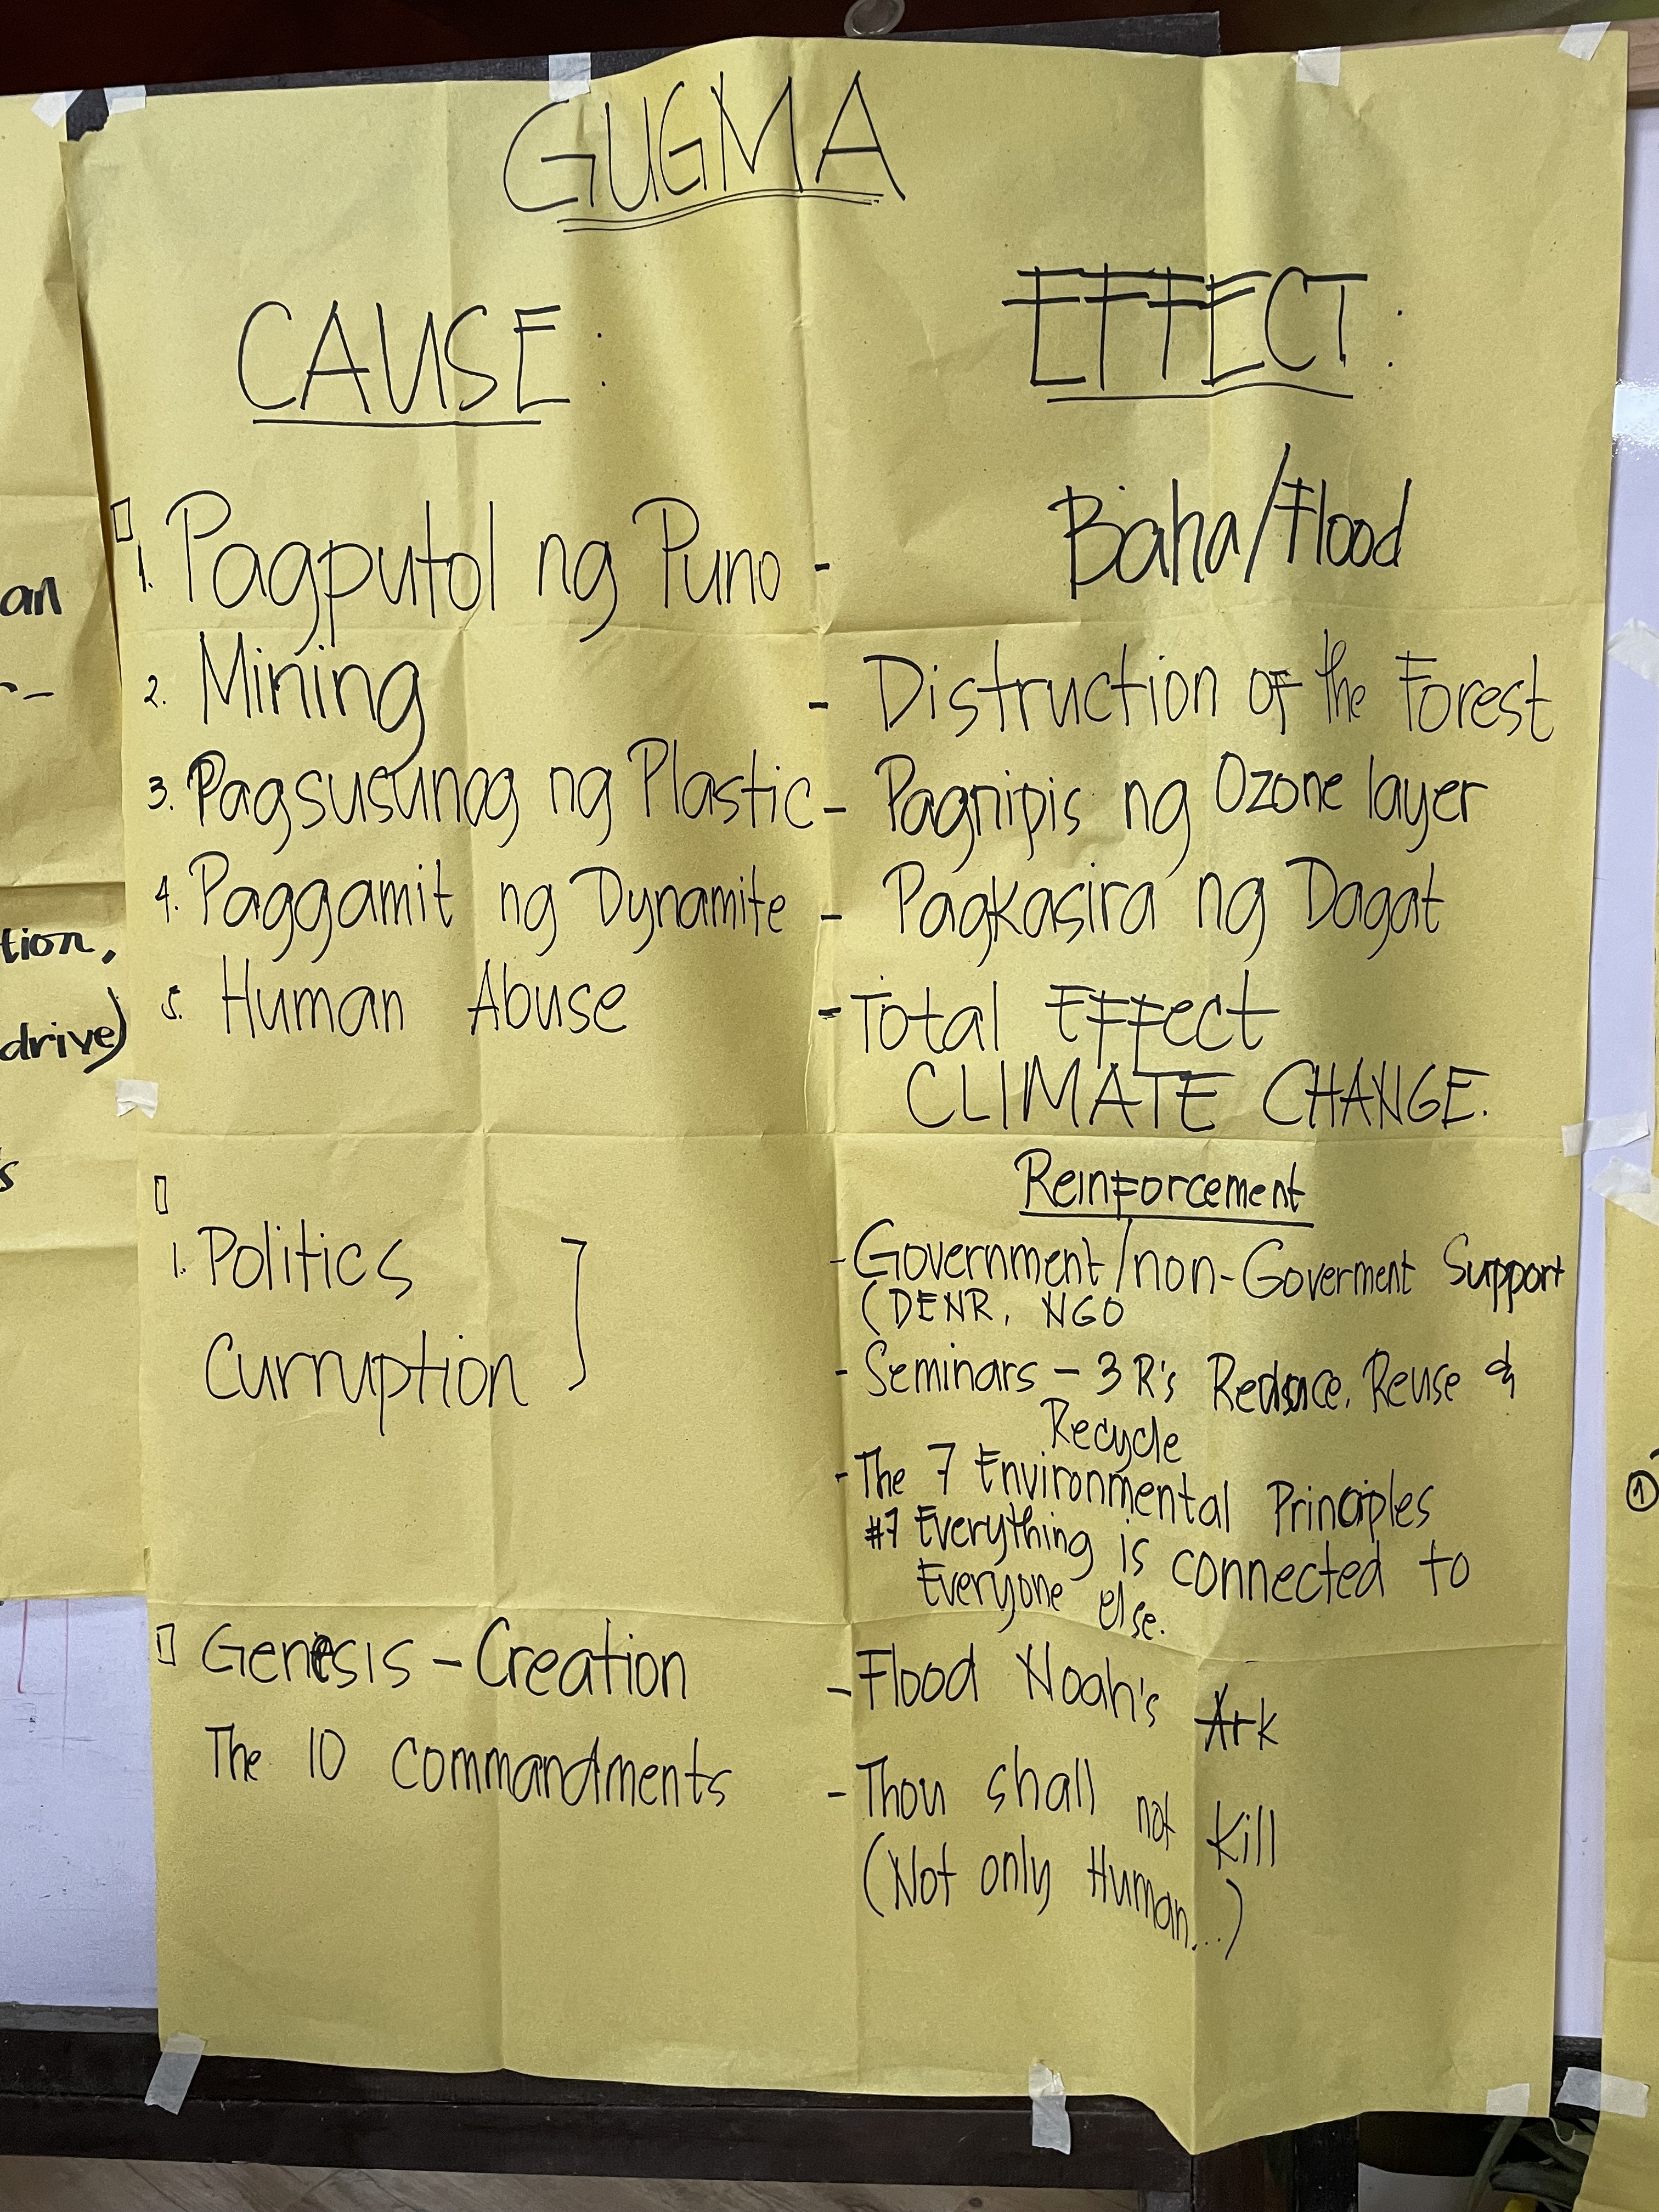 GUGMA
CAUSE:
EFFECT:
1. Pagputol ng Puno - Baha/Flood
2. Mining - Distruction of the Forest
3. Pagsusunog ng Plastic - Pagnipis ng Ozone layer
4. Paggamit ng Dynamite - Pagkasira ng Dagat
5. Human Abuse - Total Effect
CLIMATE CHANGE.
Reinforcement
1. Politics
Curruption
- Government/non-Goverment Support
(DENR, NGO
- Seminars - 3 R's Reduce, Reuse &
Recycle
- The 7 Environmental Principles
#7 Everything is connected to
Everyone else.
Genesis - Creation
The 10 commandments
- Flood Noah's Ark
- Thou shall not Kill
(Not only Human...)
an
tion,
drive)
s
1